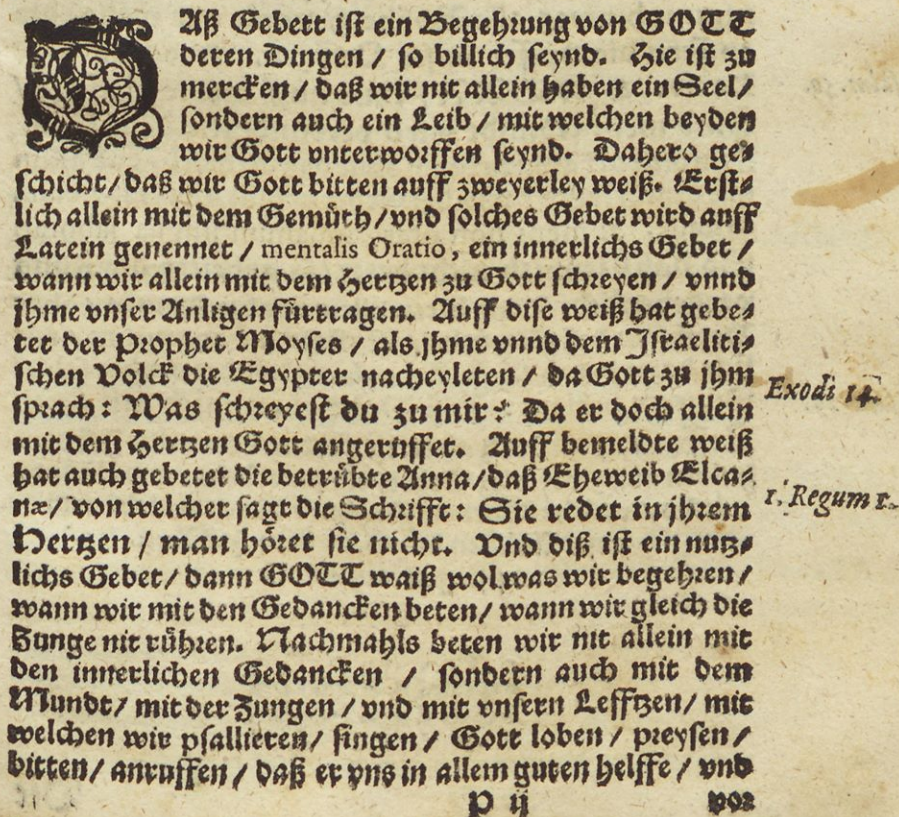 DAß Gebett ist ein Begehrung von GOTT
deren Dingen / so billich seynd. Hie ist zu
mercken / daß wir nit allein haben ein Seel/
sondern auch ein Leib / mit welchen beyden
wir Gott vnterworffen seynd. Dahero ge-
schicht/ daß wir Gott bitten auff zweyerley weiß. Erst-
lich allein mit dem Gemüth/ vnd solches Gebet wird auff
Latein genennet / mentalis Oratio, ein innerlichs Gebet /
wann wir allein mit dem Hertzen zu Gott schreyen / vnnd
jhme vnser Anligen fürtragen. Auff dise weiß hat gebe-
tet der Prophet Moyses / als jhme vnnd dem Israeliti-
schen Volck die Egypter nacheyleten / da Gott zu jhm
sprach: Was schreyest du zu mir? Da er doch allein
mit dem Hertzen Gott angeruffet. Auff bemeldte weiß
hat auch gebetet die betrübte Anna/ daß Eheweib Elca-
næ/ von welcher sagt die Schrifft: Sie redet in jhrem
Hertzen / man höret sie nicht. Vnd diß ist ein nutz-
lichs Gebet/ dann GOTT waiß wol was wir begehren /
wann wir mit den Gedancken beten/ wann wir gleich die
Zunge nit rühren. Nachmahls beten wir nit allein mit
den innerlichen Gedancken / sondern auch mit dem
Mundt/ mit der Zungen / vnd mit vnsern Lefftzen/ mit
welchen wir psallieren/ singen / Gott loben / preysen /
bitten/ anruffen / daß er vns in allem guten helffe / vnd
P ij vor
Exodi 14.
1. Regum 1.